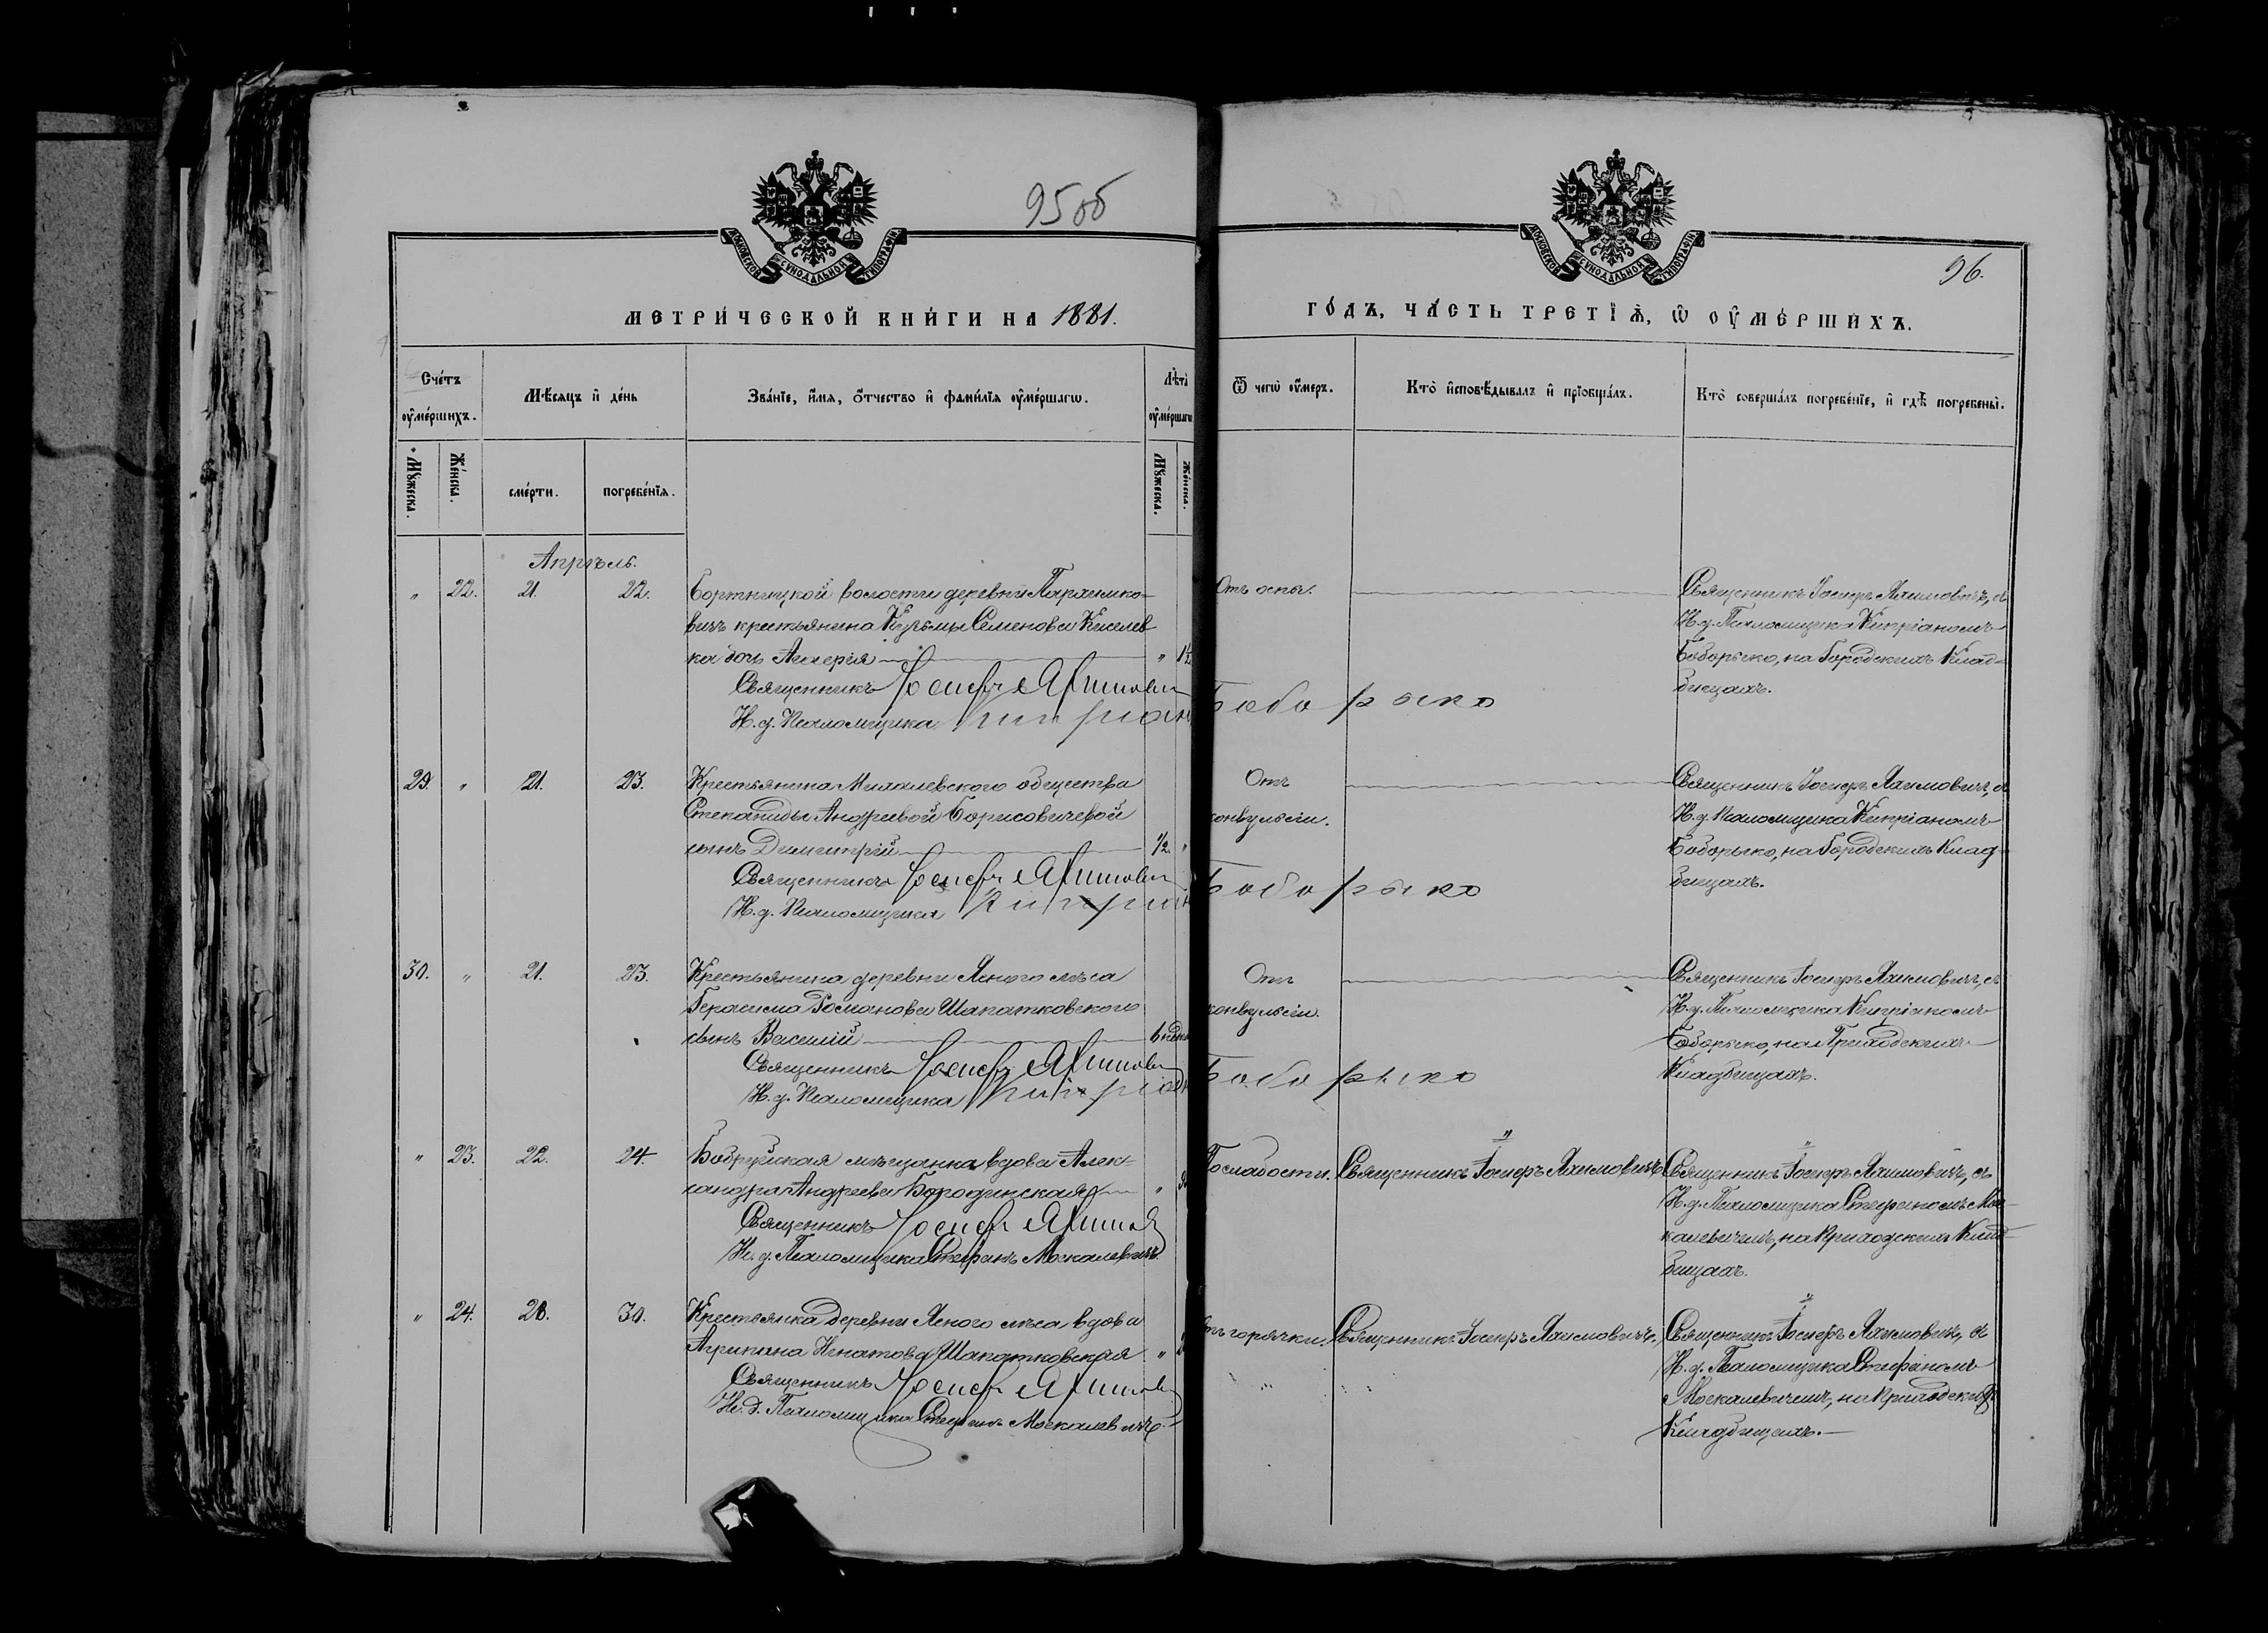 95об
МОСКОВСКОЙ СУНОДАЛЬНОЙ ТИПОГРАФІИ
МЕТРИ́ЧЕСКОЙ КНИ́ГИ НА 1881.
Сче́тъ оу҆ме́ршихъ.
Мѣ́сяцъ и҆ де́нь
Зва́нїе, и҆́мя, ѻ҆́тчество и҆ фами́лїя оу҆ме́ршагѡ.
Лѣ́та оу҆ме́ршагѡ
Мꙋ́жеска.
Же́нска.
сме́рти.
погребе́нїѧ.
Мꙋ́жеска.
Же́нска.
Апрѣль.
" 22. 21. 22. Бортницкой волости деревни Пархимко-
вичъ крестьянина Кузьмы Семенова Киселев-
ка дочь " 1½
Священникъ Іосифъ Яхимович
И. д. Псаломщика Кипріан
29. " 21. 23. Крестьянина общества
Степаниды Андреевой Борисовичевой
сынъ Димитрій ½ "
Священникъ Іосифъ Яхимович
И. д. Псаломщика Кипріан
30. " 21. 23. Крестьянина деревни Яснаго лѣса
Герасима Романова Шапатковскаго
сынъ Василій
Священникъ Іосифъ Яхимович
И. д. Псаломщика Кипріан
" 23. 22. 24. Бобруйская мѣщанка вдова Алек-
сандра Андреева Бородинская "
Священникъ Іосифъ Яхимов
И. д. Псаломщика Стефанъ Москалевичъ
" 24. 28. 30. Крестьянка деревни Яснаго лѣса вдова
Агрипина Игнатова Шапатковская "
Священникъ Іосифъ Яхимович
И. д. Псаломщика Стефанъ Москалевичъ
МОСКОВСКОЙ СУНОДАЛЬНОЙ ТИПОГРАФІИ
96.
ГО́ДЪ, ЧА́СТЬ ТРЕТЇѦ, Ѡ ОУ҆МЕ́РШИХЪ.
Ѿ чегѡ̀ оу҆́меръ.
Кто̀ и҆сповѣ́дывалъ и҆ прїобща́лъ.
Кто̀ соверша́лъ погребе́нїе, и҆ гдѣ̀ погребены̀.
Отъ оспы. Священникъ Іосифъ Яхимовичъ, съ
И. д. Псаломщика Кипріаномъ
Боборыко, на Городскихъ Клад-
бищахъ.
Боборыко
Отъ Священникъ Іосифъ Яхимовичъ, съ
конвульсіи. И. д. Псаломщика Кипріаномъ
Боборыко, на Городскихъ Клад-
бищахъ.
Боборыко
Отъ Священникъ Іосифъ Яхимовичъ, съ
конвульсіи. И. д. Псаломщика Кипріаномъ
Боборыко, на Приходскихъ
Кладбищахъ.
Боборыко
Священникъ Іосифъ Яхимовичъ Священникъ Іосифъ Яхимовичъ, съ
И. д. Псаломщика Стефаномъ Мос-
калевичемъ, на Приходскихъ Клад-
бищахъ.
отъ горячки. Священникъ Іосифъ Яхимовичъ, Священникъ Іосифъ Яхимовичъ, съ
И. д. Псаломщика Стефаномъ
Москалевичемъ, на Приходскихъ
Кладбищахъ.